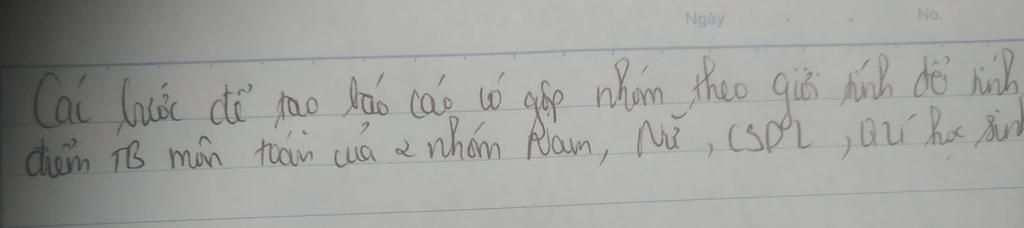 Ngày No.
Các bước để tạo báo cáo có gộp nhóm theo giới tính để tính
điểm TB môn toán của 2 nhóm Nam, Nữ, CSDL, QLí học sinh